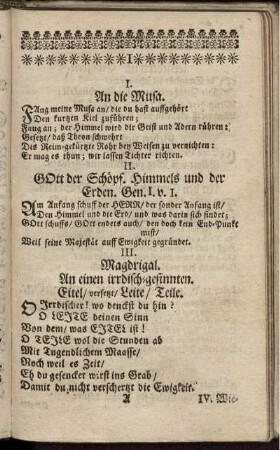 I.
An die Musa.
FAng meine Musa an/ die du hast auffgehört
Den kurtzen Kiel zuführen;
Fang an; der Himmel wird dir Geist und Adern rühren:
Gesetzt/ daß Thron schwehrt
Des Reim-gekürtzte Rohr bey Weisen zu vernichten:
Er mag es thun; wir lassen Tichter richten.
II.
GOtt der Schöpf. Himmels und der
Erden. Gen. I. v. 1.
IM Anfang schuff der HERR/ der sonder Anfang ist/
Den Himmel und die Erd/ und was darin sich findet;
GOtt schuffs/ GOtt enders auch/ den doch kein End-Punkt
mist/
Weil seine Majestät auff Ewigkeit gegründet.
III.
Magdrigal.
An einen irrdisch-gesinnten.
Eitel/ versetzt/ Leite/ Teile.
O Irrdischer! wo denckst du hin?
O LEITE deinen Sinn
Von dem/ was EITEL ist!
O TEILE wol die Stunden ab
Mit Tugendlichem Maasse/
Noch weil es Zeit/
Eh du gesencket wirst ins Grab/
Damit du nicht verschertzt die Ewigkeit.
A IV. Wie-